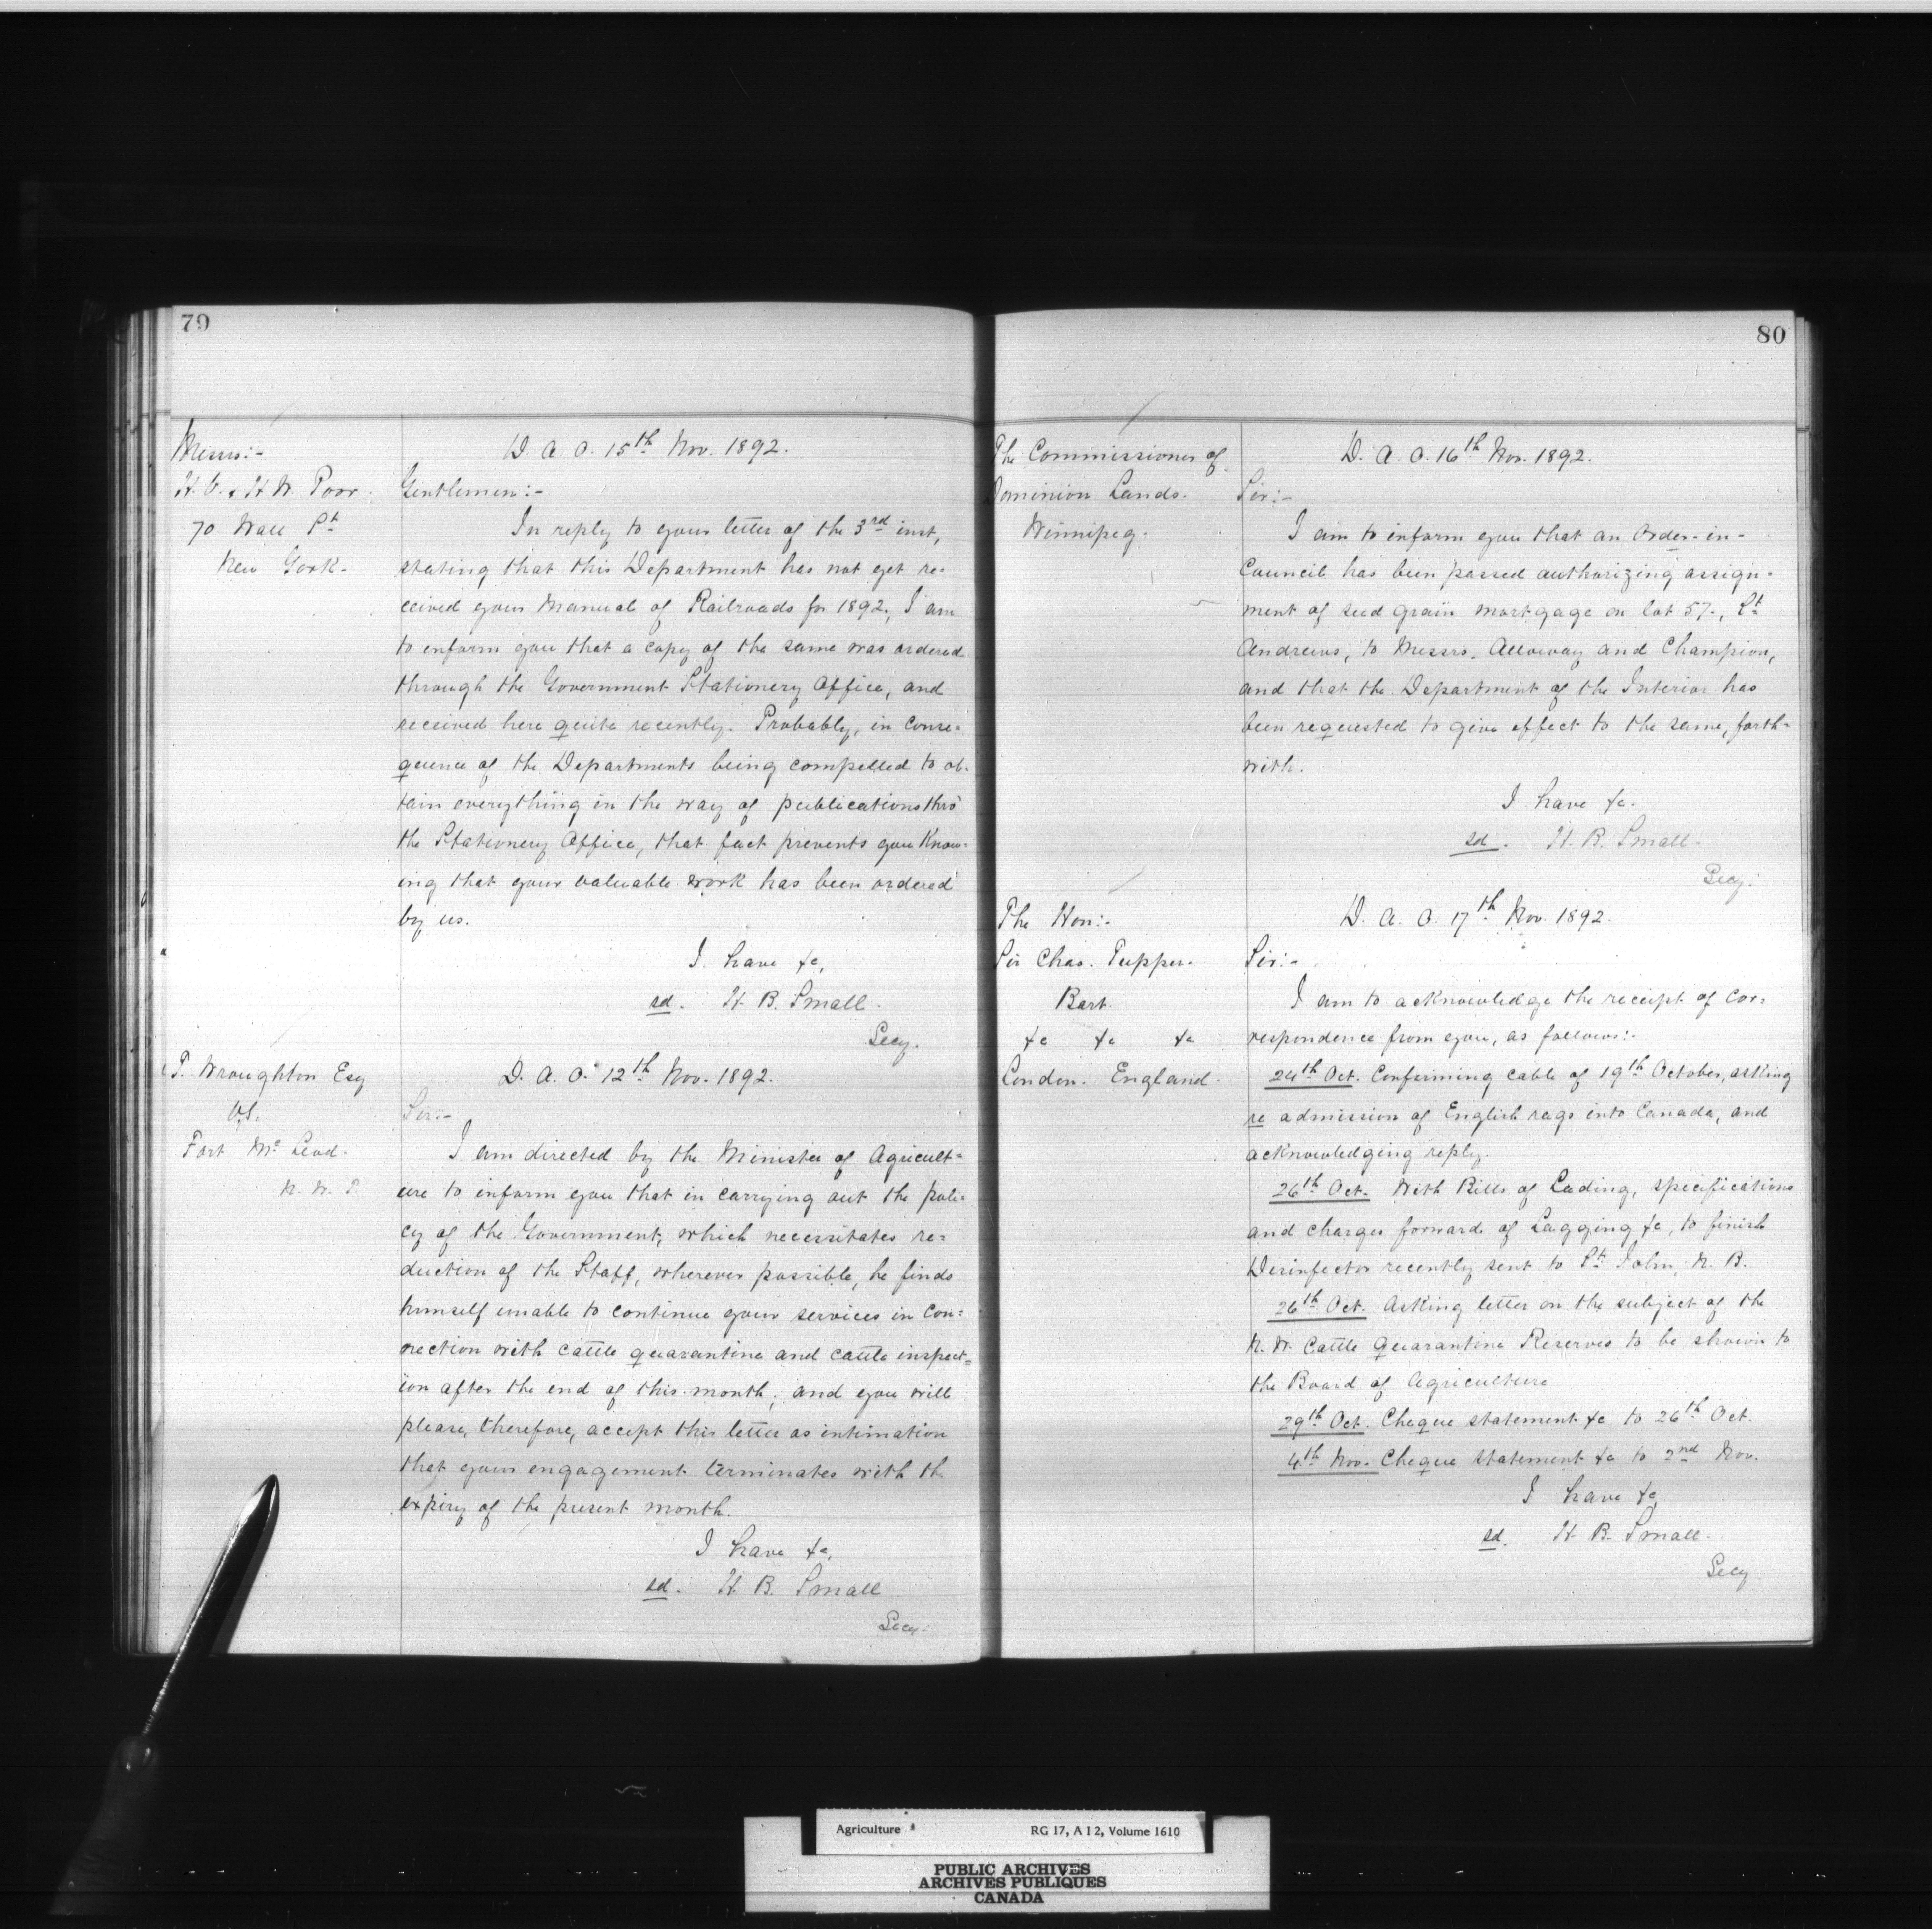 79
Messrs:-
H. V. & H. W. Poor.
70 Wall St
New York-
D. A. O. 15th Nov. 1892.
Gentlemen:-
In reply to your letter of the 3rd inst,
stating that this Department has not yet re-
ceived your Manual of Railroads for 1892, I am
to inform you that a copy of the same was ordered
through the Government Stationery Office, and
received here quite recently. Probably, in conse-
quence of the Departments being compelled to ob-
tain everything in the way of publications thro'
the Stationery Office, that fact prevents you know-
ing that your valuable work has been ordered
by us.
I have &c,
sd. H. B. Small.
Secy.
P. Wroughton Esq
V.S.
Fort Mc Leod-
N. W. T.
D. A. O. 12th Nov. 1892.
Sir:-
I am directed by the Minister of Agricult=
ure to inform you that in carrying out the poli-
cy of the Government, which necessitates re=
duction of the Staff, wherever possible, he finds
himself unable to continue your services in con=
nection with cattle quarantine and cattle inspect=
ion after the end of this month; and you will
please, therefore, accept this letter as intimation
that your engagement terminates with the
expiry of the present month.
I have &c,
sd. H. B. Small
Secy.
80
The Commissioner of
Dominion Lands.
Winnipeg.
D. A. O. 16th Nov. 1892.
Sir:-
I am to inform you that an Order-in-
Council has been passed authorizing assign-
ment of seed grain mortgage on lot 57., St
Andrews, to Messrs. Alloway and Champion,
and that the Department of the Interior has
been requested to give effect to the same, forth-
with.
I have &c.
sd. H. B. Small.
Secy.
The Hon:-
Sir Chas. Tupper.
Bart.
&c &c &c
London. England.
D. A. O. 17th Nov. 1892.
Sir:-
I am to acknowledge the receipt of cor=
respondence from you, as follows:-
24th Oct. Confirming cable of 19th October, asking
re admission of English rags into Canada, and
acknowledging reply.
26th Oct. With Bills of Lading, specifications
and charges forward of Lagging &c, to finish
Disinfector recently sent to St John, N. B.
26th Oct. Asking letter on the subject of the
N. W. Cattle Quarantine Reserves to be shown to
the Board of Agriculture
29th Oct. Cheque statement &c to 26th Oct.
4th Nov. Cheque statement &c to 2nd Nov.
I have &c,
sd. H. B. Small.
Secy.
Agriculture RG 17, A I 2, Volume 1610
PUBLIC ARCHIVES
ARCHIVES PUBLIQUES
CANADA